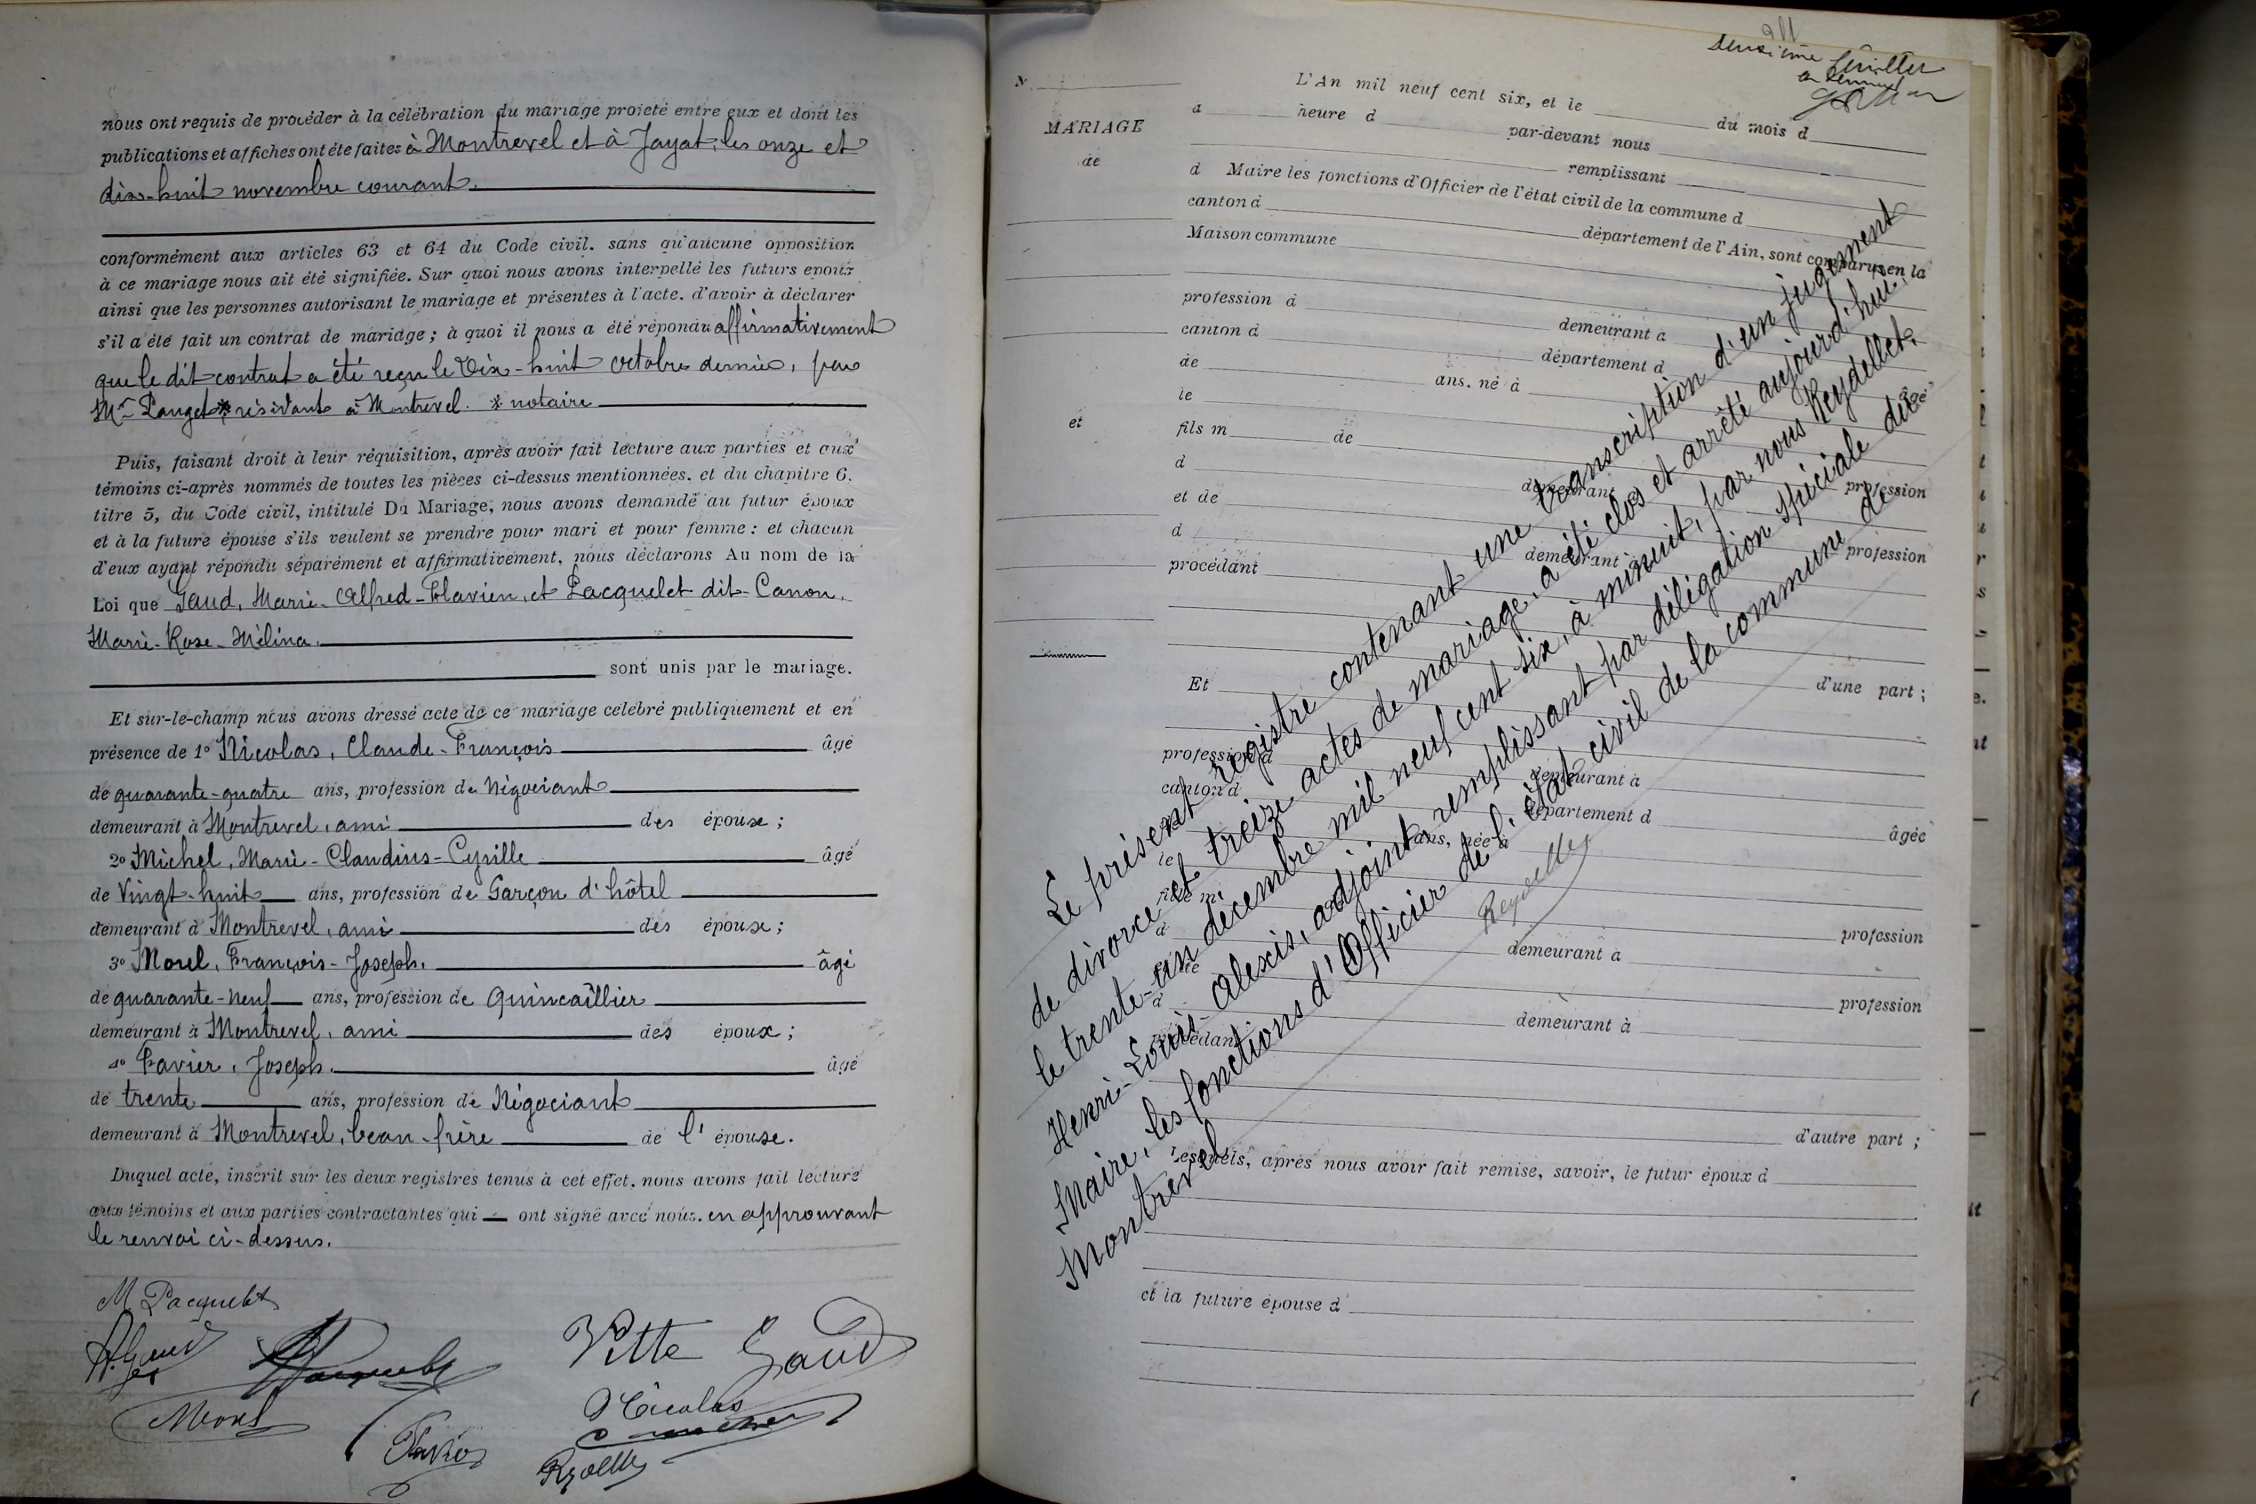 nous ont requis de procéder à la célébration du mariage projeté entre eux et dont les
publications et affiches ont été faites à Montrevel et à Jayat, les onze et
dix-huit novembre courant.
conformément aux articles 63 et 64 du Code civil, sans qu'aucune opposition
à ce mariage nous ait été signifiée. Sur quoi nous avons interpellé les futurs époux
ainsi que les personnes autorisant le mariage et présentes à l'acte, d'avoir à déclarer
s'il a été fait un contrat de mariage ; à quoi il nous a été répondu affirmativement
que le dit contrat a été reçu le dix-huit octobre dernier, par
Mr Panget * résidant à Montrevel. * notaire
Puis, faisant droit à leur réquisition, après avoir fait lecture aux parties et aux
témoins ci-après nommés de toutes les pièces ci-dessus mentionnées, et du chapitre 6,
titre 5, du Code civil, intitulé Du Mariage, nous avons demandé au futur époux
et à la future épouse s'ils veulent se prendre pour mari et pour femme : et chacun
d'eux ayant répondu séparément et affirmativement, nous déclarons Au nom de la
Loi que Gaud, Marie-Alfred-Flavien, et Pacquelet dit-Canon,
Marie-Rose-Mélina.
sont unis par le mariage.
Et sur-le-champ nous avons dressé acte de ce mariage célébré publiquement et en
présence de 1o Nicolas, Claude-François âgé
de quarante-quatre ans, profession de Négociant
demeurant à Montrevel, ami des époux ;
2o Michel, Marie-Claudius-Cyrille âgé
de Vingt-huit ans, profession de Garçon d'hôtel
demeurant à Montrevel, ami des époux ;
3o Morel, François-Joseph, âgé
de quarante-neuf ans, profession de Quincaillier
demeurant à Montrevel, ami des époux ;
4o Favier, Joseph. âgé
de trente ans, profession de Négociant
demeurant à Montrevel, beau-frère de l'épouse.
Duquel acte, inscrit sur les deux registres tenus à cet effet, nous avons fait lecture
aux témoins et aux parties contractantes qui ont signé avec nous. en approuvant
le renvoi ci-dessus.
M Pacquelet
A. Gaud
Pacquelet
Vitte Gaud
Morel
Nicolas
Favier
Reydellet
Deuxième feuillet
N.
MARIAGE
de
et
L'An mil neuf cent six, et le du mois d
à heure d par-devant nous
remplissant
d Maire les fonctions d'Officier de l'état civil de la commune d
canton d département de l'Ain, sont comparus en la
Maison commune
profession d demeurant à
canton d département d
de ans, né à âgé
le
fils m de
d demeurant profession
et de
d demeurant à profession
procédant
Et d'une part ;
profession d demeurant à
canton d département d
ans, née à âgée
le
fille m
d demeurant à profession
et de
d demeurant à profession
procédant
d'autre part ;
Lesquels, après nous avoir fait remise, savoir, le futur époux d
et la future épouse d
Le présent registre contenant une transcription d'un jugement
de divorce et treize actes de mariage, a été clos et arrêté aujourd'hui,
le trente-un décembre mil neuf cent six, à minuit, par nous Reydellet,
Henri-Louis-Alexis, adjoint, remplissant par délégation spéciale du
Maire, les fonctions d'Officier de l'état civil de la commune de
Montrevel
Reydellet